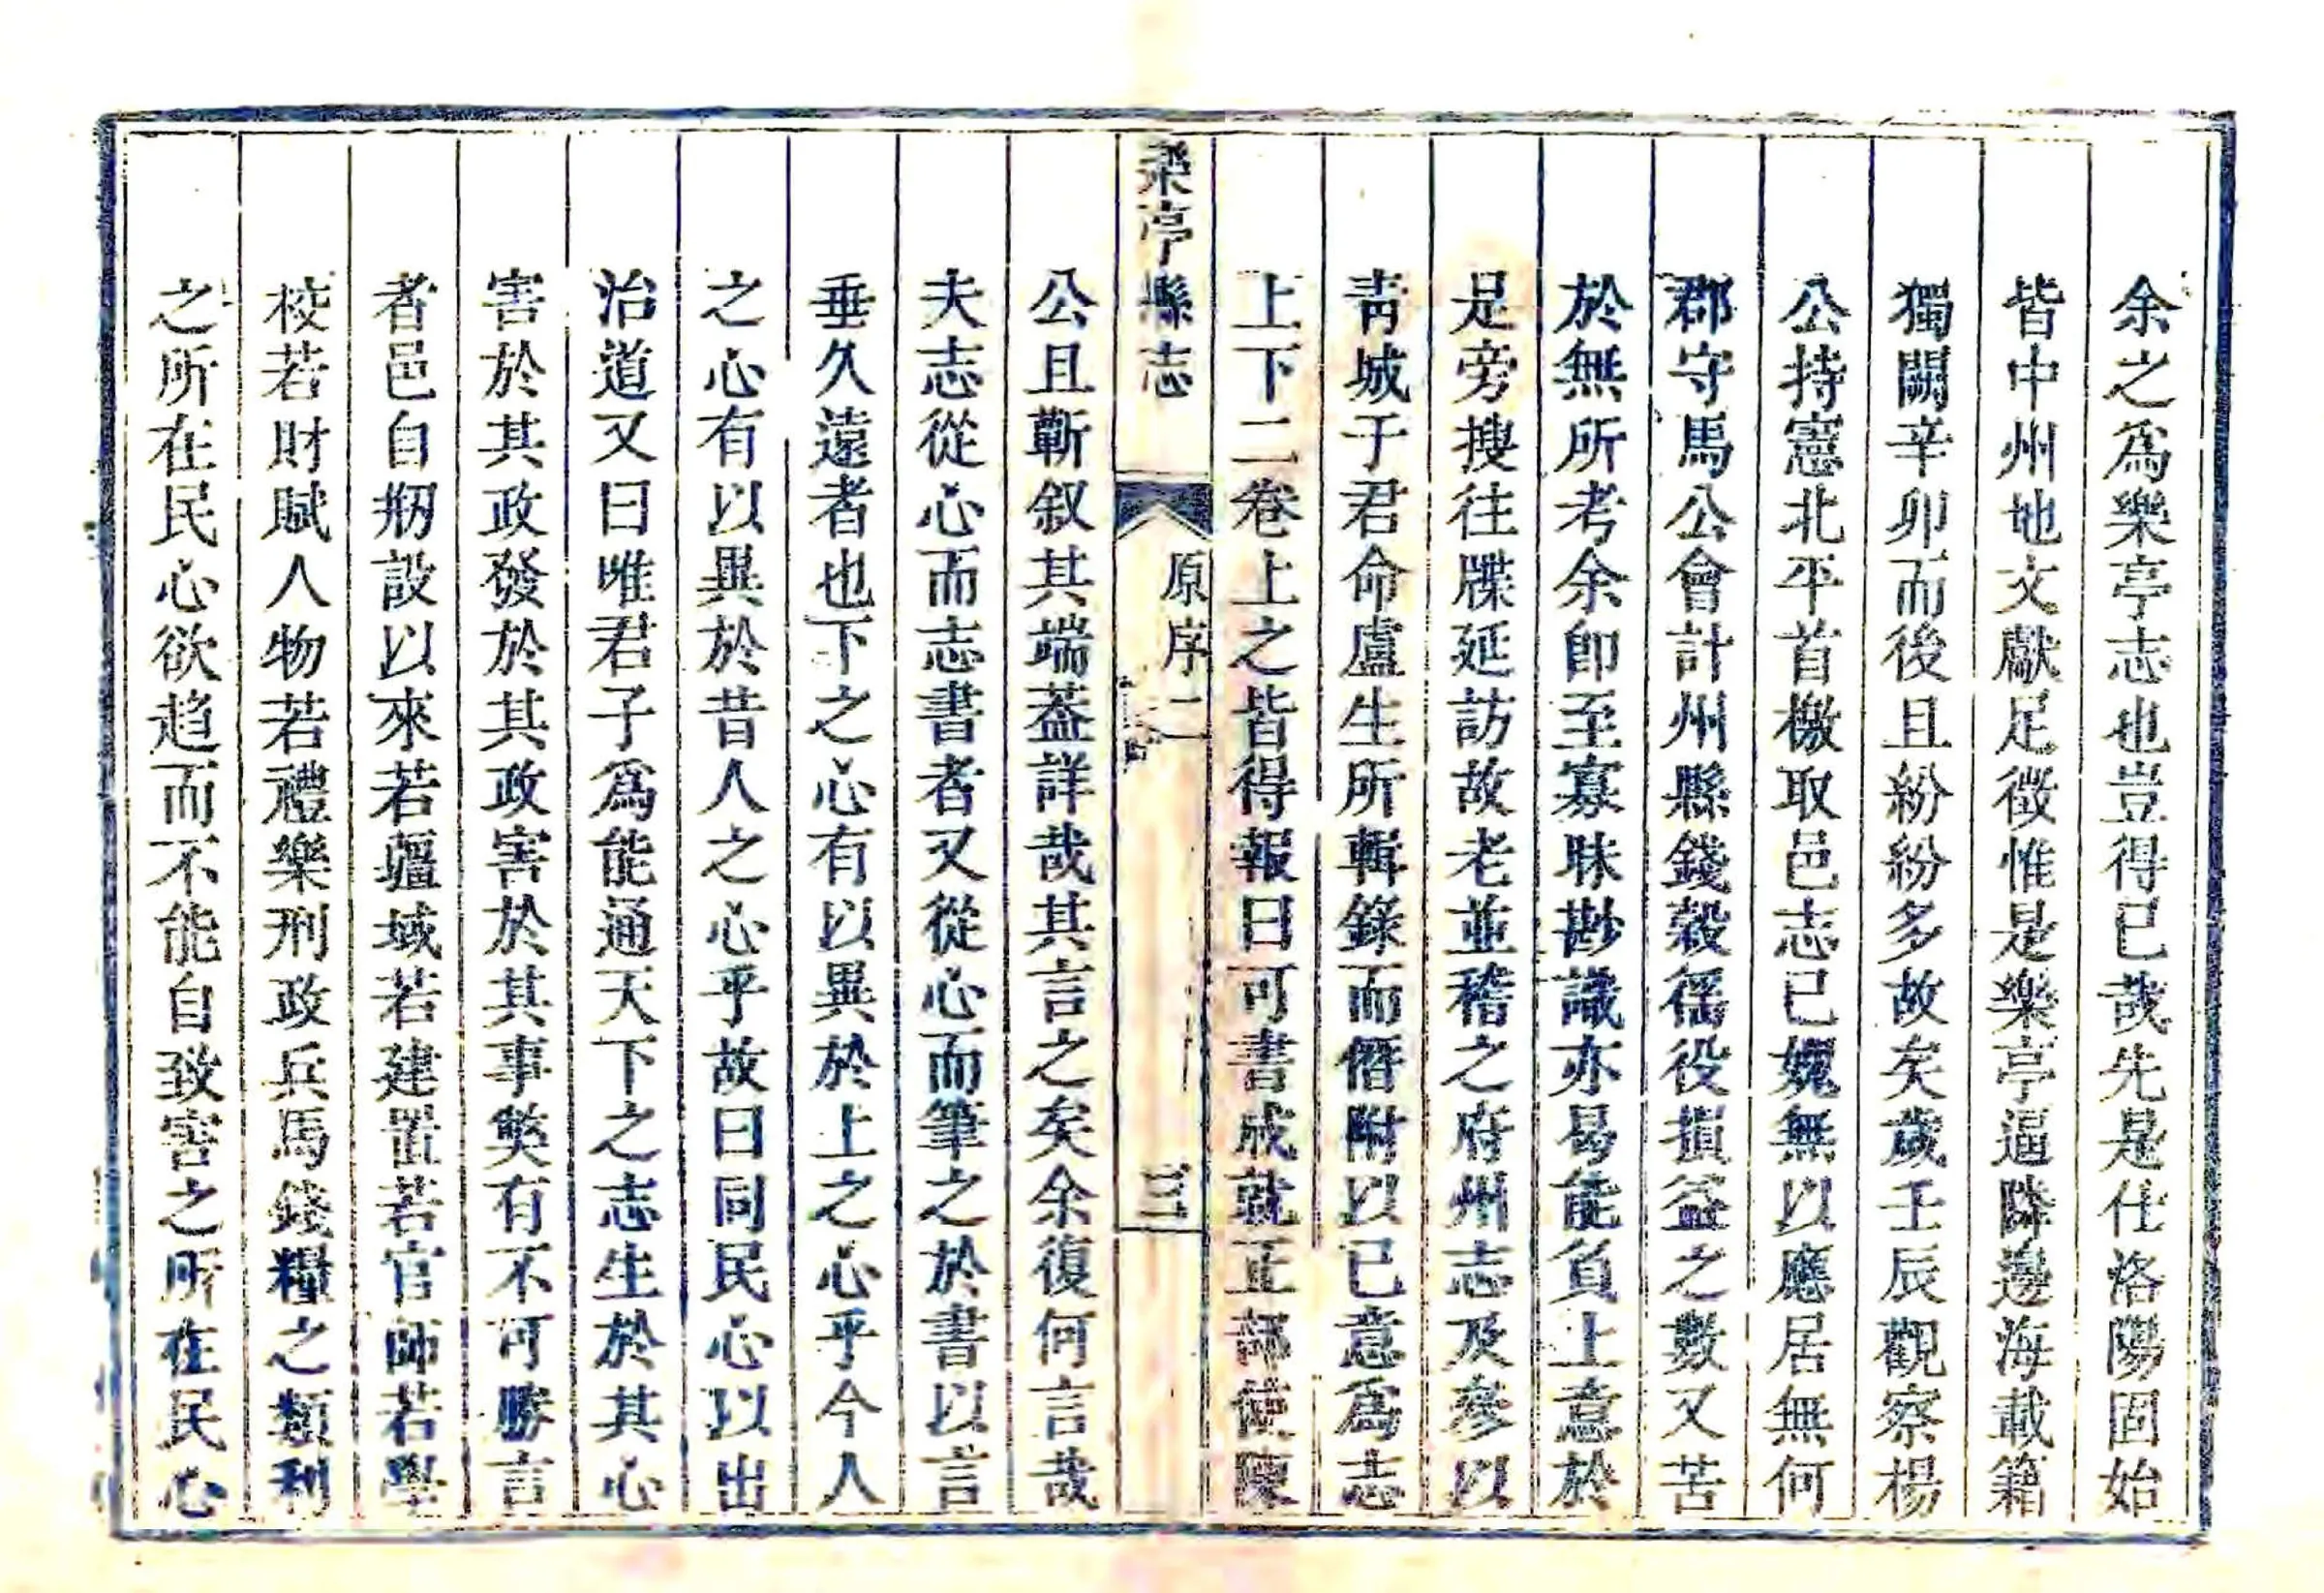 余之爲樂亭志也豈得已哉先是仕洛陽固始
皆中州地文獻足徵惟是樂亭逼陲邊海載籍
獨闕辛卯而後且紛紛多故矣歲壬辰觀察楊
公持憲北平首檄取邑志已媿無以應居無何
郡守馬公會計州縣錢穀徭役損益之數又苦
於無所考余卽至寡昧尠識亦曷能負上意於
是旁搜往牒延訪故老並稽之府州志及參以
靑城于君命盧生所輯錄而僭附以已意爲志
上下二卷上之皆得報曰可書成就正部使陳
樂亭縣志
原序二
三
公且蘄叙其端葢詳哉其言之矣余復何言哉
夫志從心而志書者又從心而筆之於書以言
垂久遠者也下之心有以異於上之心乎今人
之心有以異於昔人之心乎故曰同民心以出
治道又曰唯君子爲能通天下之志生於其心
害於其政發於其政害於其事獘有不可勝言
者邑自剏設以來若疆域若建置若官師若學
校若財賦人物若禮樂刑政兵馬錢糧之類利
之所在民心欲趋而不能自致害之所在民心